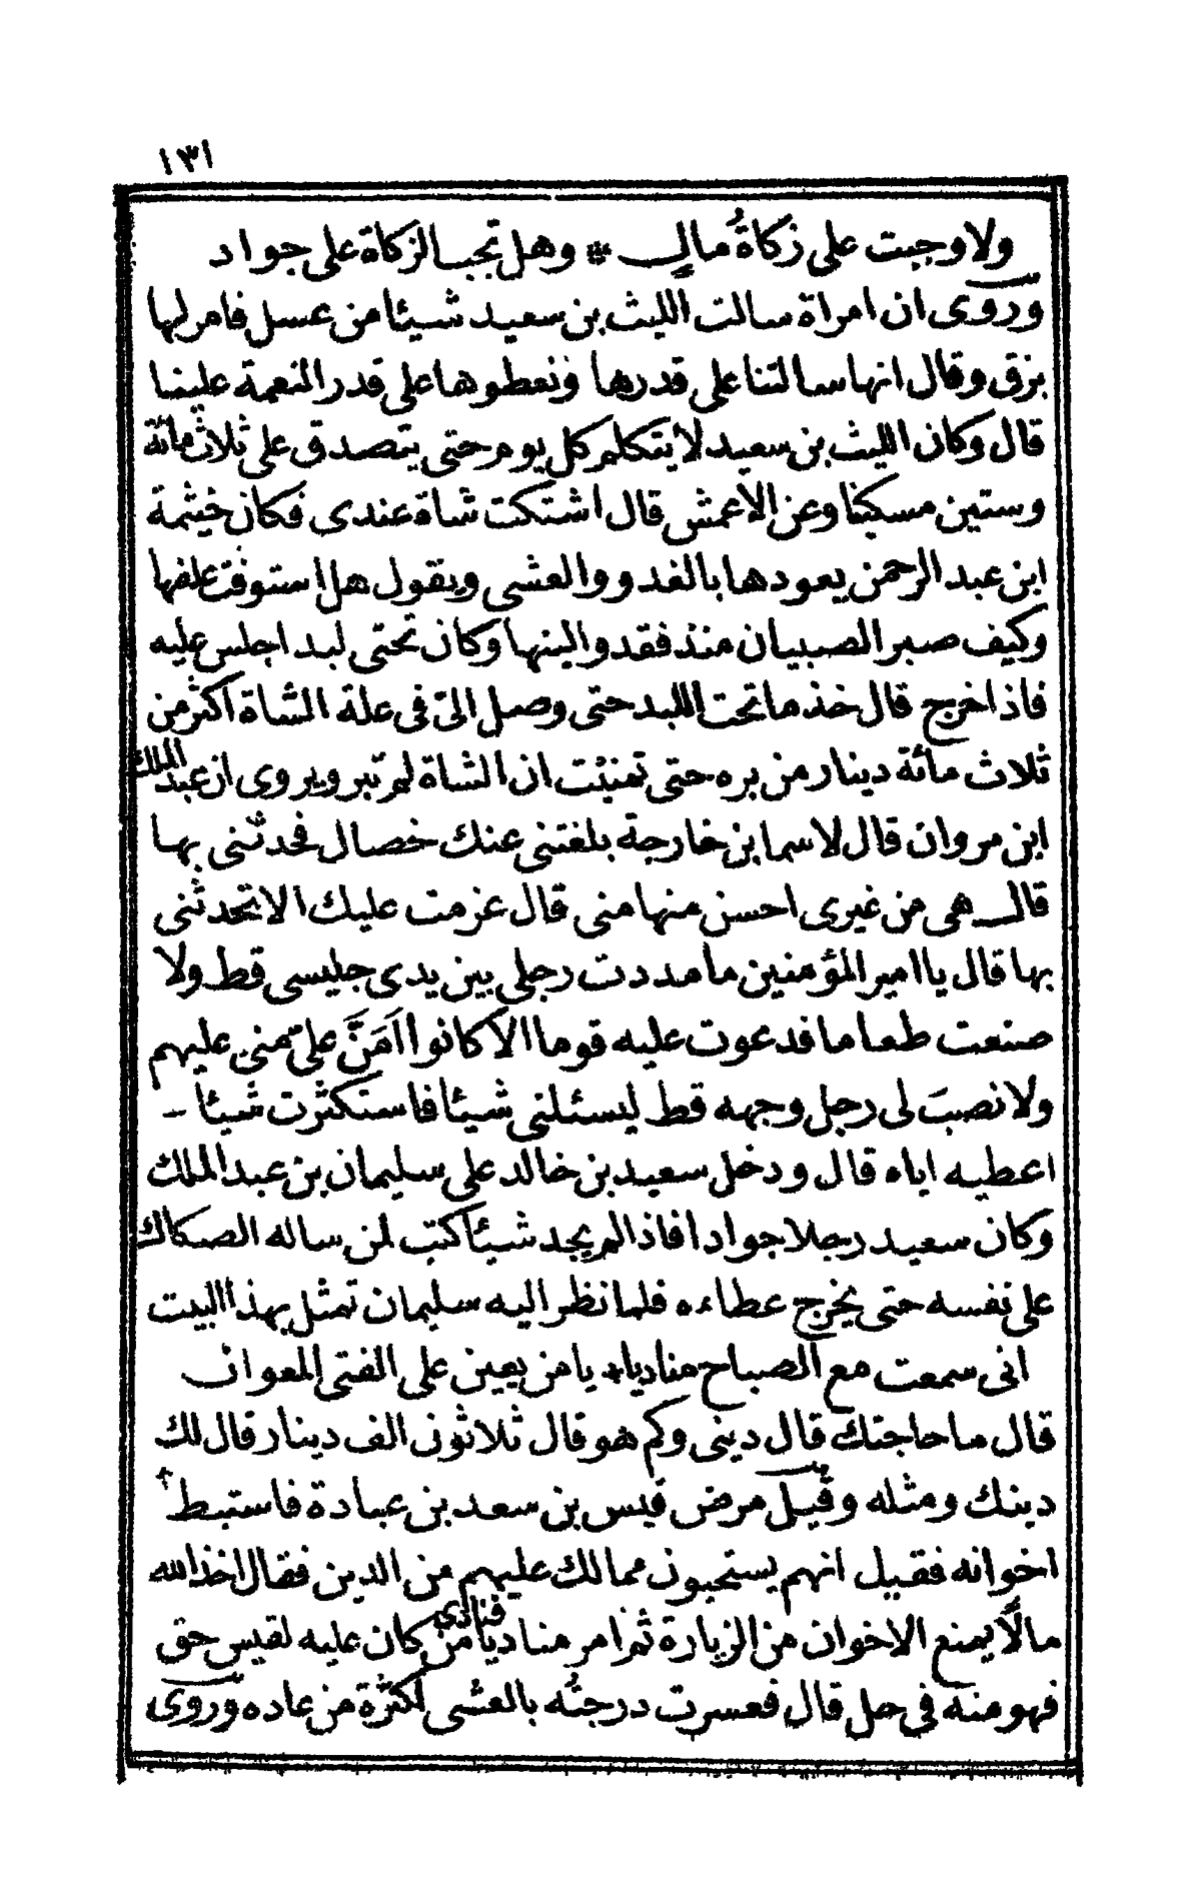 ١٣١
ولا وجبت على زكاةُ مالٍ * وهل تجب الزكاة على جواد
وروى ان امراة سالت الليث بن سعيد شيئا من عسل فامر لها
بزق وقال انها سالتنا على قدرها ونعطوها على قدر النعمة علينا
قال وكان الليث بن سعيد لا يتكلم كل يوم حتى يتصدق على ثلاث مائة
وستين مسكينا وعن الاعمش قال اشتكت شاة عندى فكان خيثمة
ابن عبد الرحمن يعودها بالغدو والعشى ويقول هل استوفت علفها
وكيف صبر الصبيان منذ فقدوا لبنها وكان تحتى لبد اجلس عليه
فاذا خرج قال خذ ما تحت اللبد حتى وصل الىّ فى علة الشاة اكثر من
ثلاث مائة دينار من بره حتى تمنيت ان الشاة لم تبر ويروى ان عبد الملك
ابن مروان قال لاسما بن خارجة بلغتنى عنك خصال فحدثنى بها
قال هى من غيرى احسن منها منى قال عزمت عليك الا تحدثنى
بها قال يا امير المؤمنين ما مددت رجلى بين يدى جليسى قط ولا
صنعت طعاما فدعوت عليه قوما الا كانوا اَمَنَّ علىّ منى عليهم
ولا نصبَ لى رجل وجهه قط ليسئلنى شيئا فاستكثرت شيئا
اعطيه اياه قال ودخل سعيد بن خالد على سليمان بن عبد الملك
وكان سعيد رجلا جوادا فاذا لم يجد شيئا كتب لمن ساله الصكاك
على نفسه حتى يخرج عطاءه فلما نظر اليه سليمان تمثل بهذا البيت
انى سمعت مع الصباح مناديا * يا من يعين على الفتى المعوان
قال ما حاجتك قال دينى وكم هو قال ثلاثونى الف دينار قال لك
دينك ومثله وقيل مرض قيس بن سعد بن عبادة فاستبطأ
اخوانه فقيل انهم يستحيون ممالك عليهم من الدين فقال اخذا الله
مالًا يمنع الاخوان من الزيارة ثم امر مناديا فنادى من كان عليه لقيس حق
فهو منه فى حل قال فعسرت درجتُه بالعشى لكثرة من عاده وروى